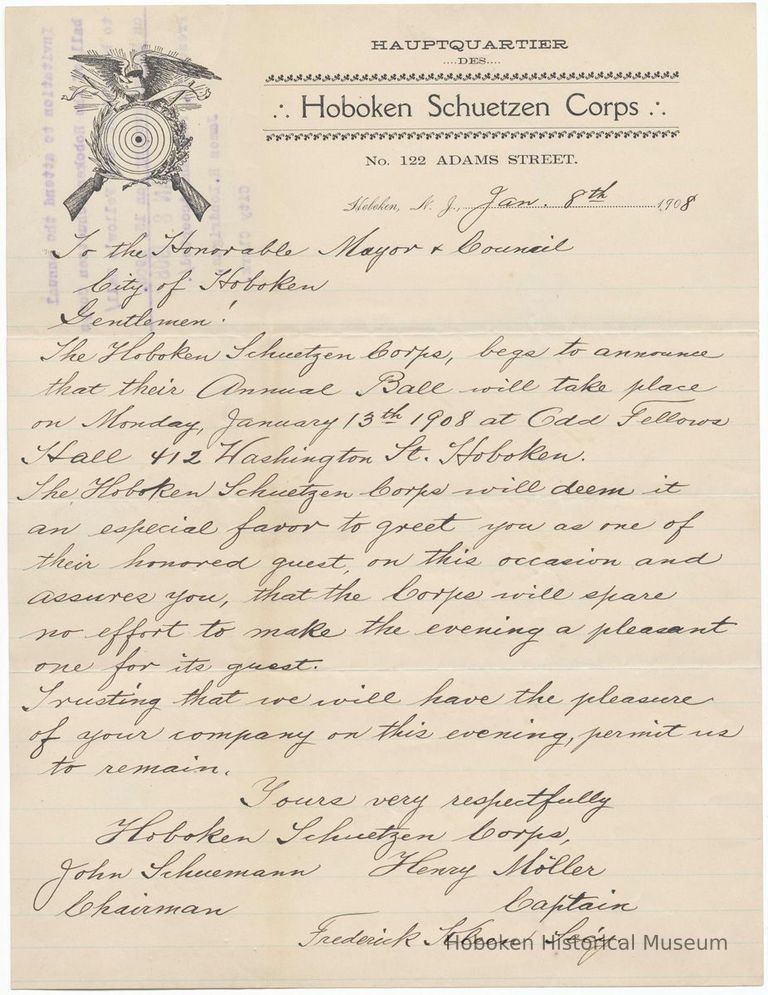 HAUPTQUARTIER
....DES....
.·. Hoboken Schuetzen Corps .·.
No. 122 ADAMS STREET.
Hoboken, N. J., Jan. 8th 1908
To the Honorable Mayor & Council
City of Hoboken
Gentlemen!
The Hoboken Schuetzen Corps, begs to announce
that their Annual Ball will take place
on Monday, January 13th 1908 at Odd Fellows
Hall 412 Washington St. Hoboken.
The Hoboken Schuetzen Corps will deem it
an especial favor to greet you as one of
their honored guest, on this occasion and
assures you, that the Corps will spare
no effort to make the evening a pleasant
one for its guest.
Trusting that we will have the pleasure
of your company on this evening, permit us
to remain.
Yours very respectfully
Hoboken Schuetzen Corps,
John Schuemann Henry Möller
Chairman Captain
Frederick Secy
Hoboken Historical Museum